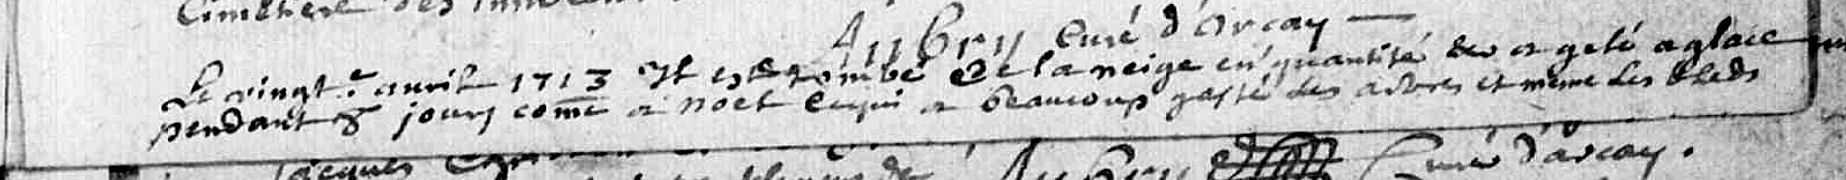 Cimetiere des
Aubry Curé d'Arcay
Le vingt.e avril 1713 Il est tombé de la neige en quantité et a gelé a glace
pendant 8 jours come a noel cequi a beaucoup gasté les arbres et meme les bleds
Jacques
Aubry Curé d'arcay.